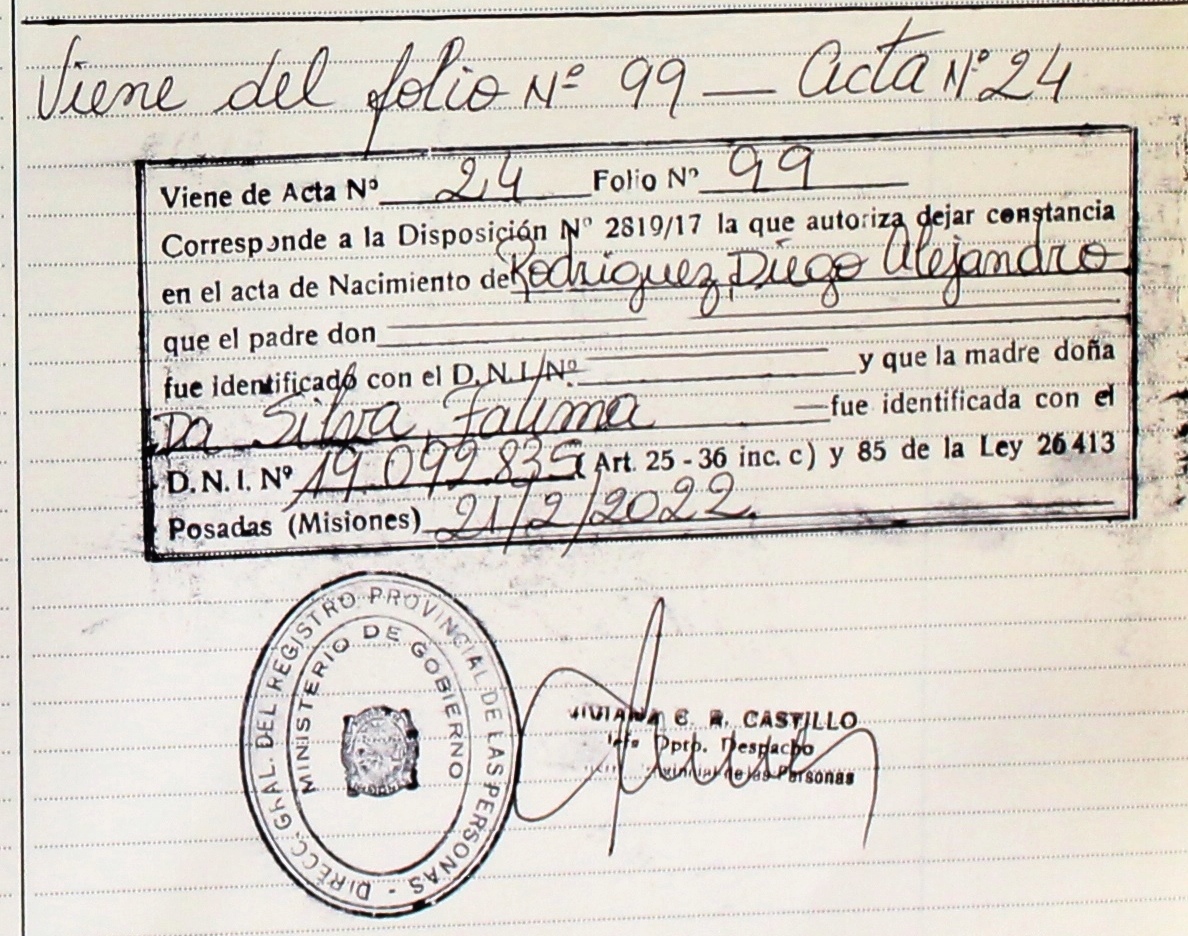 Viene del folio Nº 99 — Acta Nº 24
Viene de Acta Nº 24 Folio Nº 99
Corresponde a la Disposición Nº 2819/17 la que autoriza dejar constancia
en el acta de Nacimiento de Rodriguez, Diego Alejandro
que el padre don
fue identificado con el D.N.I. Nº y que la madre doña
Da Silva, Fatima fue identificada con el
D.N.I. Nº 19.092.835 (Art. 25 - 36 inc. c) y 85 de la Ley 26413
Posadas (Misiones) 21/2/2022.
DIRECC. GRAL. DEL REGISTRO PROVINCIAL DE LAS PERSONAS -
MINISTERIO DE GOBIERNO
VIVIANA C. R. CASTILLO
Jefe Dpto. Despacho
Provincial de las Personas